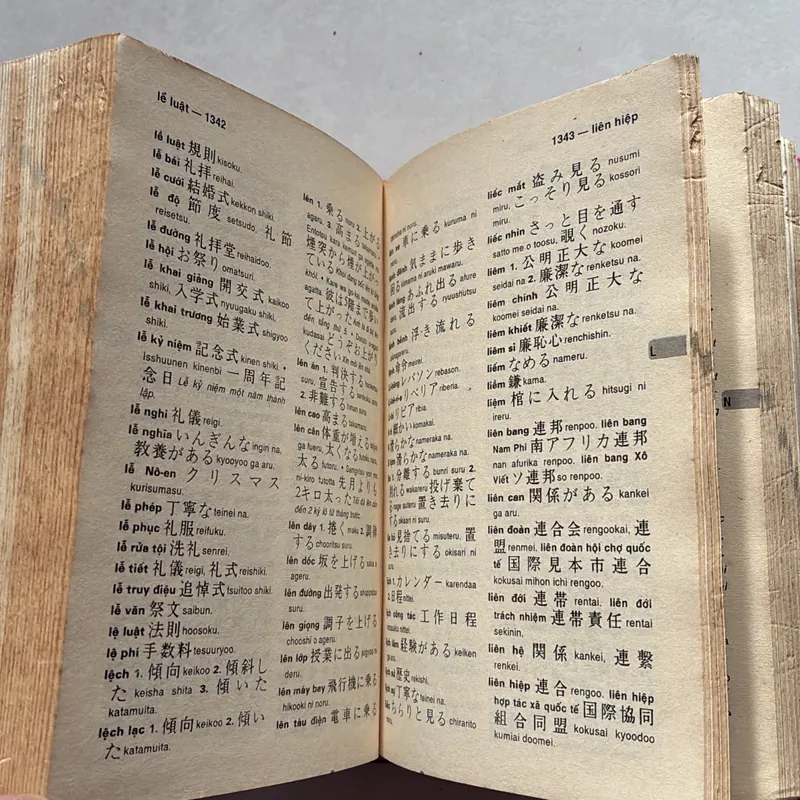 lề luật — 1342
lề luật 規則 kisoku.
lễ bái 礼拝 reihai.
lễ cưới 結婚式 kekkon shiki.
lễ độ 節度 setsudo, 礼節
reisetsu.
lễ đường 礼拝堂 reihaidoo.
lễ hội お祭り omatsuri.
lễ khai giảng 開交式 kaikoo
shiki, 入学式 nyuugaku shiki.
lễ khai trương 始業式 shigyoo
shiki.
lễ kỷ niệm 記念式 kinen shiki. •
Isshuunen kinenbi 一周年記
念日 Lễ kỷ niệm một năm thành
lập.
lễ nghi 礼儀 reigi.
lễ nghĩa いんぎんな ingin na,
教養がある kyooyoo ga aru.
lễ Nô-en クリスマス
kurisumasu.
lễ phép 丁寧な teinei na.
lễ phục 礼服 reifuku.
lễ rửa tội 洗礼 senrei.
lễ tiết 礼儀 reigi, 礼式 reishiki.
lễ truy điệu 追悼式 tsuitoo shiki.
lễ văn 祭文 saibun.
lệ luật 法則 hoosoku.
lệ phí 手数料 tesuuryoo.
lệch 1. 傾向 keikoo 2. 傾斜し
た keisha shita 3. 傾いた
katamuita.
lệch lạc 1. 傾向 keikoo 2. 傾い
た katamuita.
lên 1. 乗る noru 2. 上がる
agaru. 3. 高まる
煙突から煙が上がっ
ている
agatta 彼は5階まで
て上がった
kudasai どうぞお上がり
ください Xin mời lên nhà
lên án 1. 判決する
する 宣告する
2. 非難する hinan suru.
lên cao 高まる takamaru.
lên cân 体重が増える
ga fueru, 太くなる
太る futoru.
ni-kiro futotta 先月よりも
2キロ太った
đến 2 ký lô từ tháng trước.
lên dây 1. 捲く maku 2. 調律
する chooritsu suru.
lên dốc 坂を上げる saka o
ageru.
lên đường 出発する shuppatsu
suru.
lên giọng 調子を上げる
chooshi o ageru.
lên lớp 授業に出る jugyoo ni
deru.
lên máy bay 飛行機に乗る
hikooki ni noru.
lên tàu điện 電車に乗る
1343 — liên hiệp
ni noru.
車に乗る kuruma ni
気ままに歩き
回る kimama ni aruki mawaru.
あふれ出る afure
流出する ryuushutsu
suru.
浮き流れる
命令 meirei.
レバソン rebason.
リベリア riberia.
リビア ribia.
細かい komakai.
滑らかな nameraka na.
滑らかな nameraka na.
1. 分離する bunri suru 2.
れる wakareru 投げ棄て
る nage suteru 置き去りに
する okisari ni suru.
見捨てる misuteru, 置
き去りにする okisari ni
suru.
1. カレンダー karendaa
2. 日程 nittei.
lịch công tác 工作日程
経験がある keiken
ga aru.
歴史 rekishi.
丁寧な teinei na.
ちらりと見る chirarito
miru.
liếc mắt 盗み見る nusumi
miru, こっそり見る kossori
miru.
liếc nhìn さっと目を通す
satto me o toosu, 覗く nozoku.
liêm 1. 公明正大な koomei
seidai na 2. 廉潔な renketsu na.
liêm chính 公明正大な
koomei seidai na.
liêm khiết 廉潔な renketsu na.
liêm sỉ 廉恥心 renchishin.
liếm なめる nameru.
liềm 鎌 kama.
liệm 棺に入れる hitsugi ni
ireru.
liên bang 連邦 renpoo. liên bang
Nam Phi 南アフリカ連邦
nan afurika renpoo. liên bang Xô
Viết ソ連邦 so renpoo.
liên can 関係がある kankei
ga aru.
liên đoàn 連合会 rengookai, 連
盟 renmei. liên đoàn hội chợ quốc
tế 国際見本市連合
kokusai mihon ichi rengoo.
liên đới 連帯 rentai. liên đới
trách nhiệm 連帯責任 rentai
sekinin.
liên hệ 関係 kankei, 連繫
renkei.
liên hiệp 連合 rengoo. liên hiệp
hợp tác xã quốc tế 国際協同
組合同盟 kokusai kyoodoo
kumiai doomei.
L
N